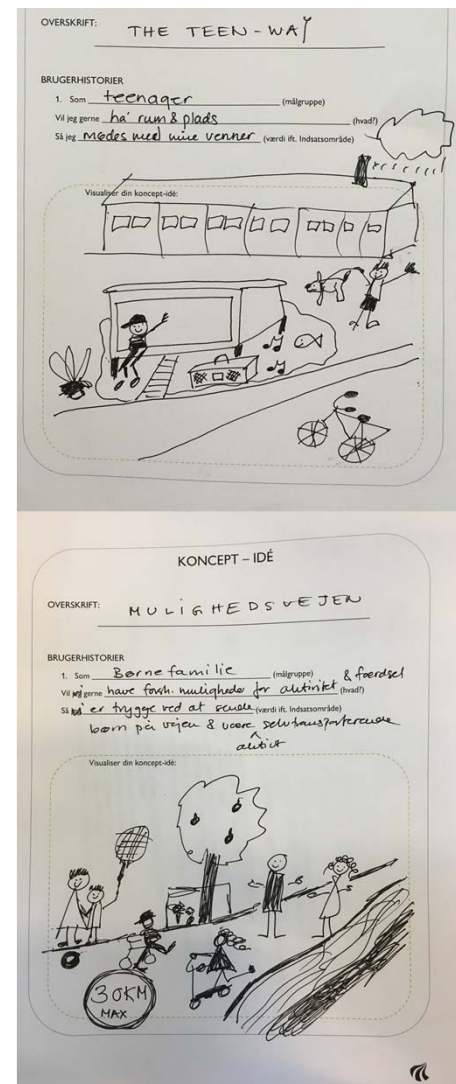 OVERSKRIFT: THE TEEN-WAY
BRUGERHISTORIER
1. Som teenager (målgruppe)
Vil jeg gerne ha' rum & plads (hvad?)
Så jeg mødes med mine venner (værdi ift. Indsatsområde)
Visualiser din koncept-idé:
KONCEPT – IDÉ
OVERSKRIFT: MULIGHEDSVEJEN
BRUGERHISTORIER
1. Som Børnefamilie (målgruppe) & færdsel
Vil gerne have forsk. muligheder for aktivitet (hvad?)
Så er trygge ved at sende (værdi ift. Indsatsområde)
børn på vejen & være selvtransporterende
aktivt
Visualiser din koncept-idé:
30KM
MAX